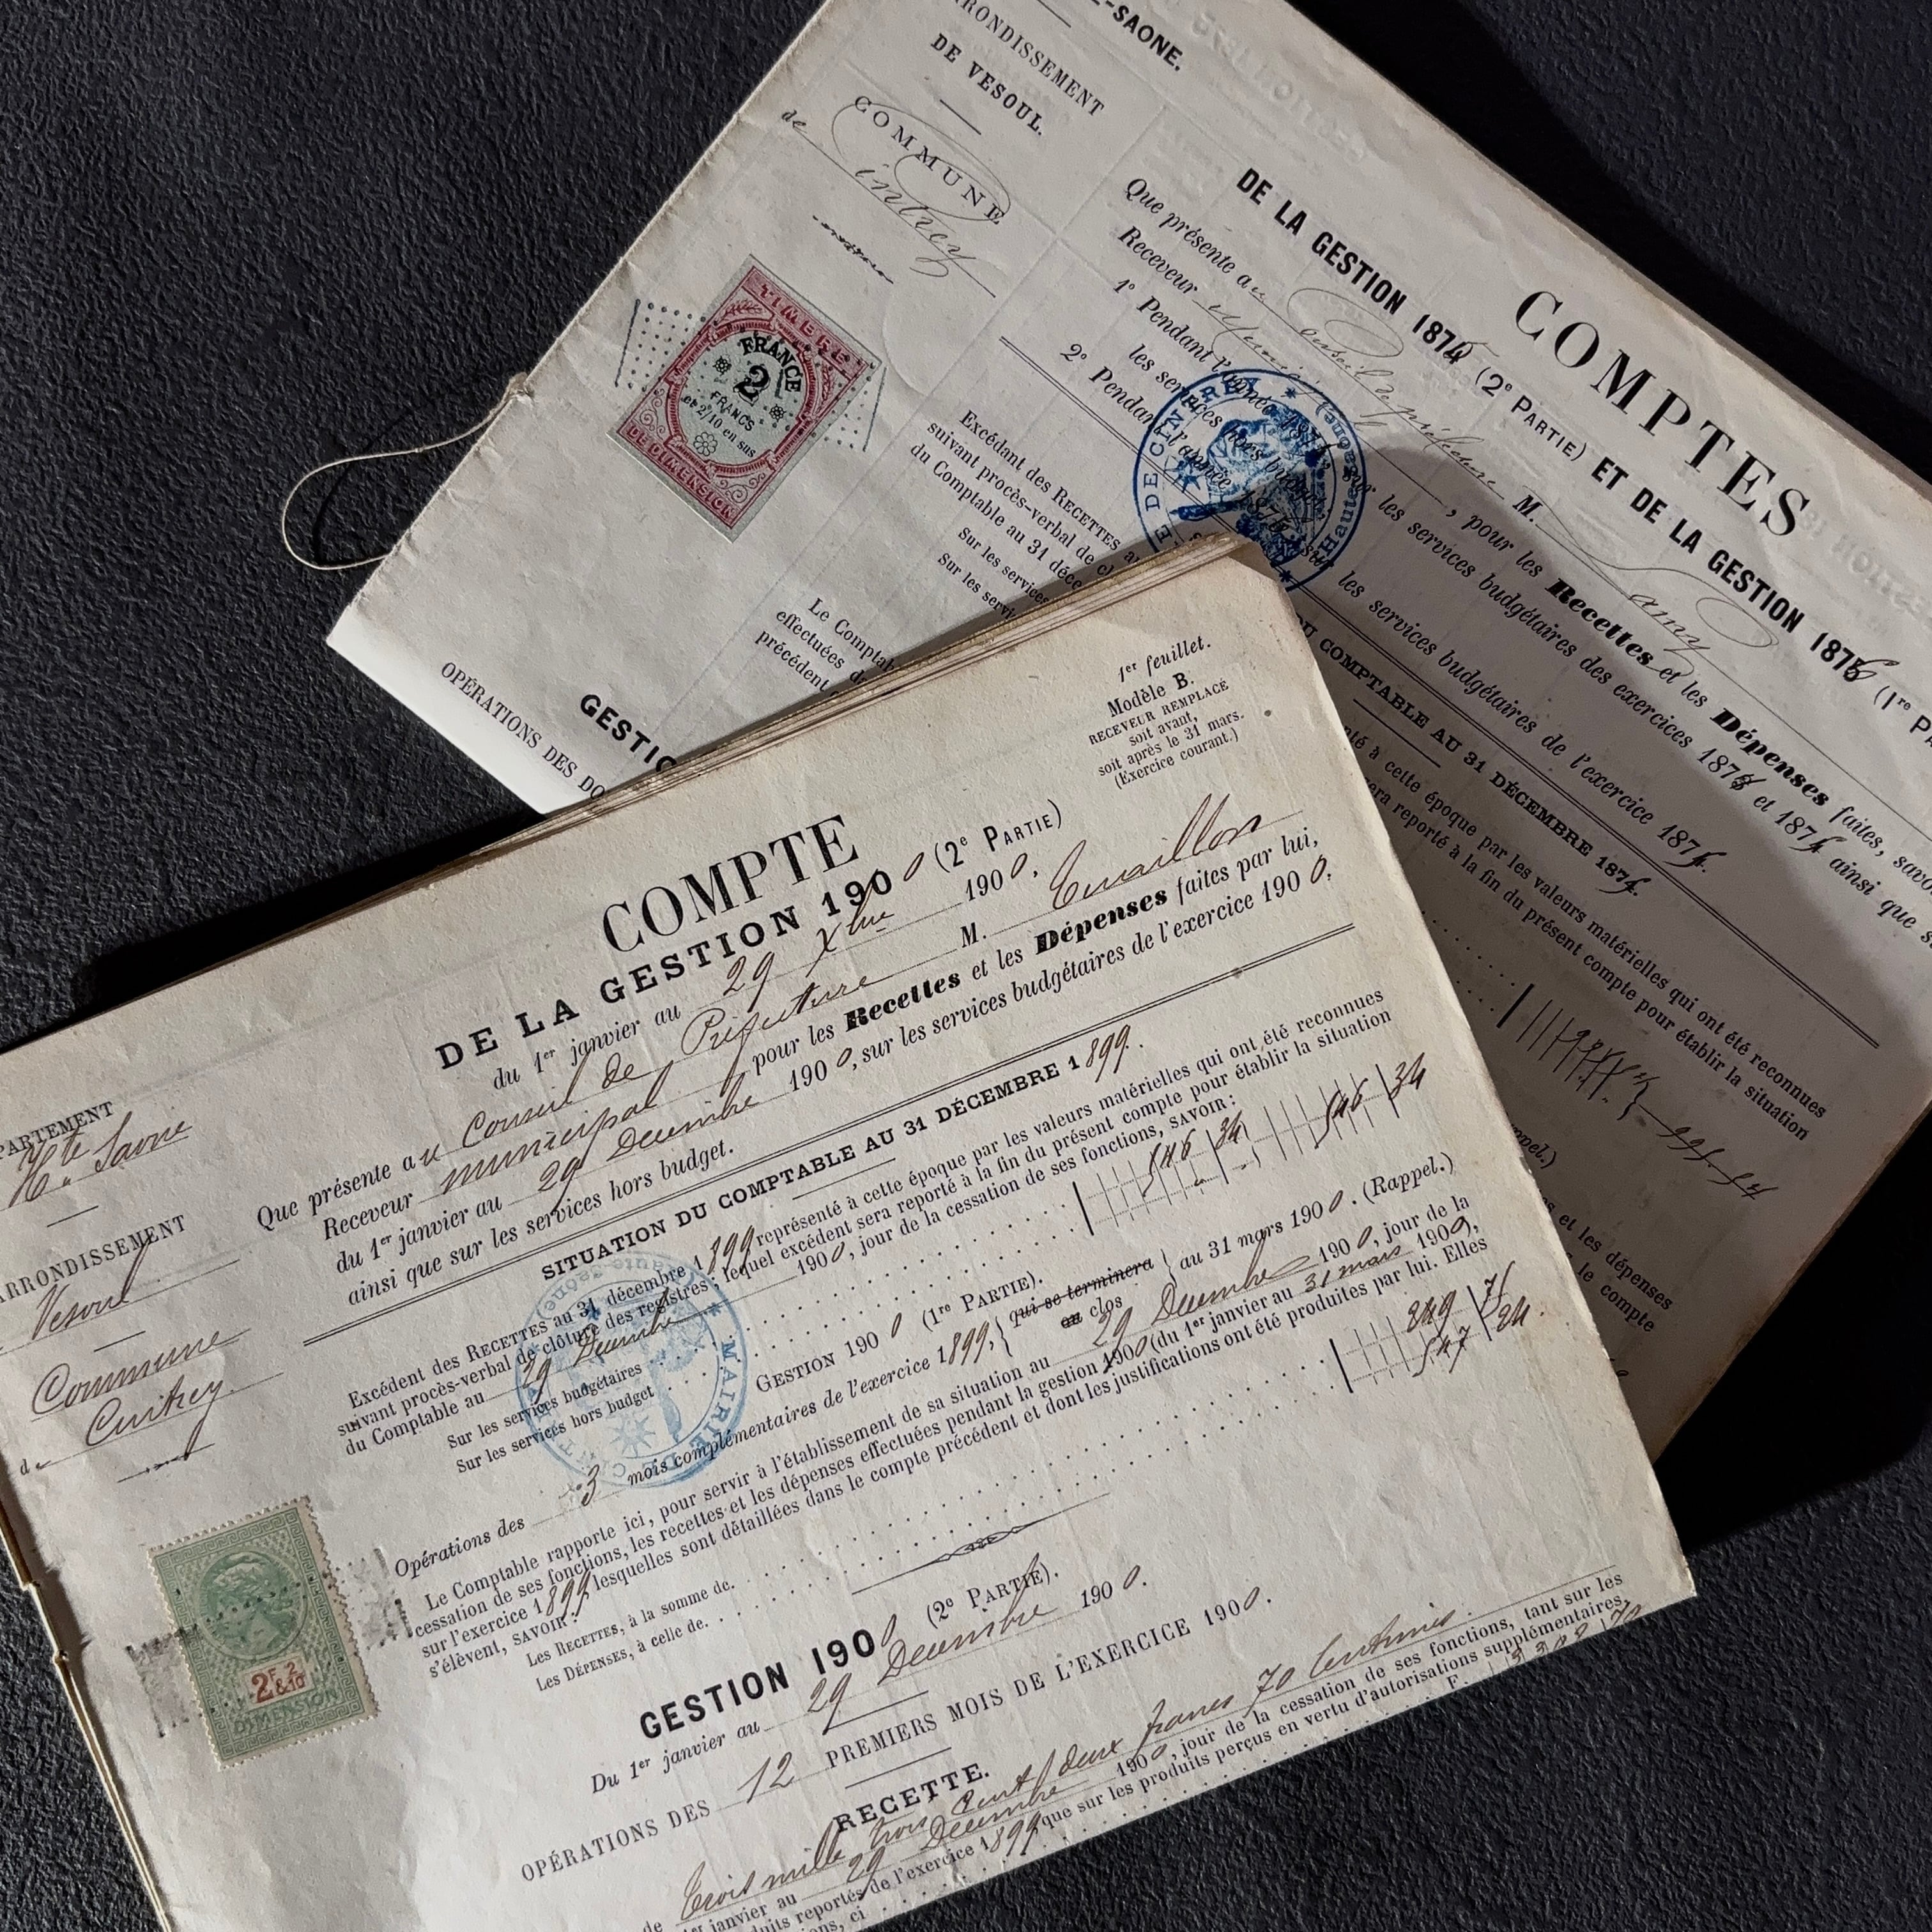 -SAONE.
ARRONDISSEMENT
DE VESOUL.
COMMUNE
de
COMPTES
DE LA GESTION 1874 (2e PARTIE) ET DE LA GESTION 1875 (1re P
Que présente au Conseil de préfecture M. Amy
Receveur Municipal, pour les Recettes et les Dépenses faites, savo
1o Pendant l'année 187 sur les services budgétaires des exercices 187 et 187 ainsi que s
les services
2o Pendant l'année 187 sur les services budgétaires de l'exercice 187
TIMBRE
FRANCE
2
FRANCS
et 2/10 en sus
DE DIMENSION
E DE CINTREY
Haute Saône
DU COMPTABLE AU 31 DÉCEMBRE 187
Excédant des RECETTES au
suivant procès-verbal de cl
du Comptable au 31 déce
Sur les services
Sur les servi
à cette époque par les valeurs matérielles qui ont été reconnues
sera reporté à la fin du présent compte pour établir la situation
Le Comptab
effectuées d
précédent
GESTIO
OPÉRATIONS DES DO
ppel.)
et les dépenses
le compte
1er feuillet.
Modèle B.
RECEVEUR REMPLACÉ
soit avant,
soit après le 31 mars.
(Exercice courant.)
COMPTE
DE LA GESTION 1900 (2e PARTIE)
du 1er janvier au 29 Xbre 1900.
Que présente au Conseil de Préfecture M.
Receveur municipal pour les Recettes et les Dépenses faites par lui,
du 1er janvier au 29 Décembre 1900, sur les services budgétaires de l'exercice 1900,
ainsi que sur les services hors budget.
PARTEMENT
Hte Saone
ARRONDISSEMENT
Vesoul
Commune
de Cintrey
SITUATION DU COMPTABLE AU 31 DÉCEMBRE 1899.
Excédent des RECETTES au 31 décembre 1899 représenté à cette époque par les valeurs matérielles qui ont été reconnues
suivant procès-verbal de clôture des registres; lequel excédent sera reporté à la fin du présent compte pour établir la situation
du Comptable au 29 Décembre 1900, jour de la cessation de ses fonctions, SAVOIR:
Sur les services budgétaires 546 34
Sur les services hors budget 546 34
MAIRIE DE CINT
GESTION 1900 (1re PARTIE).
Opérations des 3 mois complémentaires de l'exercice 1899, { qui se terminera
ou clos } au 31 mars 1900. (Rappel.)
Le Comptable rapporte ici, pour servir à l'établissement de sa situation au 29 Décembre 1900, jour de la
cessation de ses fonctions, les recettes et les dépenses effectuées pendant la gestion 1900 (du 1er janvier au 31 mars 1900,
sur l'exercice 1899, lesquelles sont détaillées dans le compte précédent et dont les justifications ont été produites par lui. Elles
s'élèvent, SAVOIR:
Les RECETTES, à la somme de
Les DÉPENSES, à celle de
GESTION 1900 (2e PARTIE).
Du 1er janvier au 29 Décembre 1900.
OPÉRATIONS DES 12 PREMIERS MOIS DE L'EXERCICE 1900.
2F 2
&10
DIMENSION
RECETTE.
de Trois mille trois cent deux francs 70 Centimes
1er janvier au 29 Décembre 1900, jour de la cessation de ses fonctions, tant sur les
duits reportés de l'exercice 1899 que sur les produits perçus en vertu d'autorisations supplémentaires,
ons, ci F. 3302 70